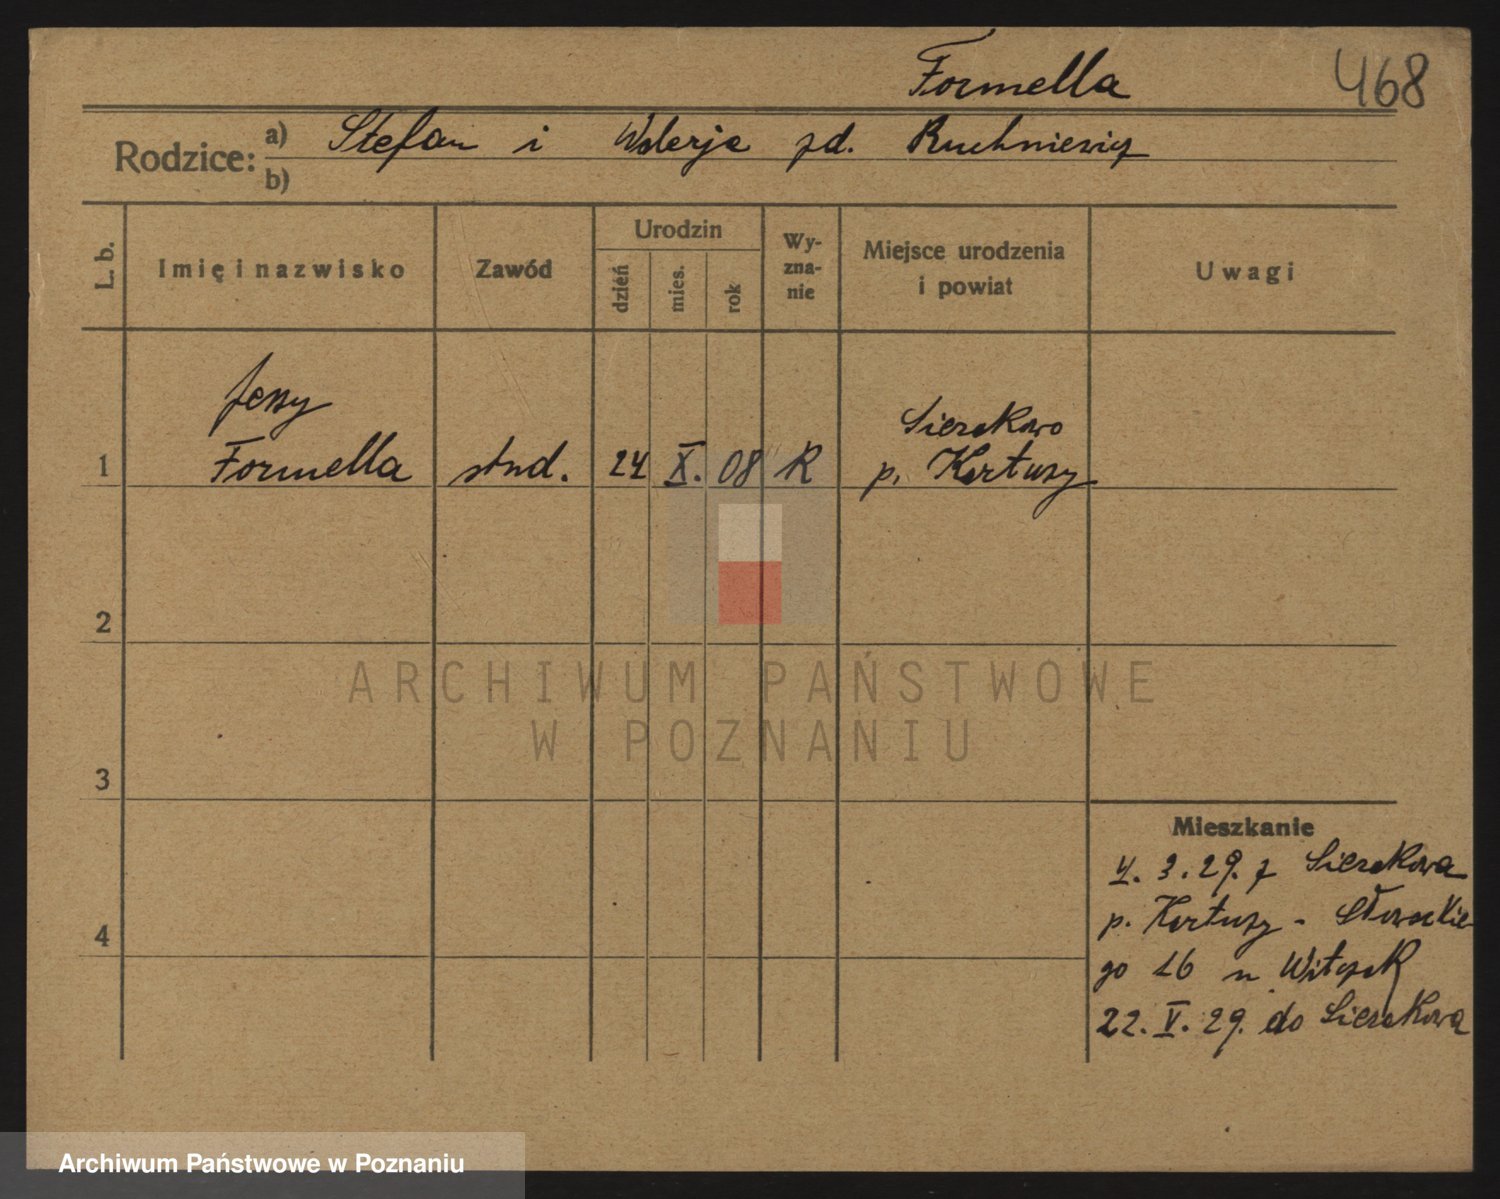 Formella
468
Rodzice:
a) Stefan i Walerja zd. Ruchniewicz
b)
L. b.
Imię i nazwisko
Zawód
Urodzin
dzień
mies.
rok
Wy-
zna-
nie
Miejsce urodzenia
i powiat
Uwagi
Jerzy
1 Formella stud. 24 X. 08 R
Sierakowo
p. Kartuzy
2
3
4
ARCHIWUM PAŃSTWOWE
W POZNANIU
Mieszkanie
4. 3. 29. z Sierakowa
p. Kartuzy - Słowackie
go 16 u Witczak
22. V. 29. do Sierakowa
Archiwum Państwowe w Poznaniu